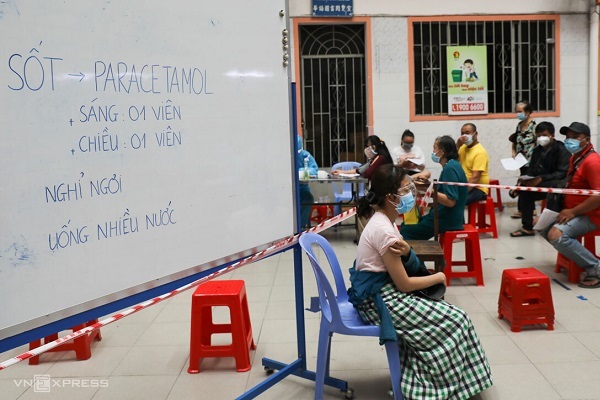 SỐT → PARACETAMOL
+ SÁNG : 01 VIÊN
+ CHIỀU : 01 VIÊN
NGHỈ NGƠI
UỐNG NHIỀU NƯỚC
1900 6600
VNEXPRESS